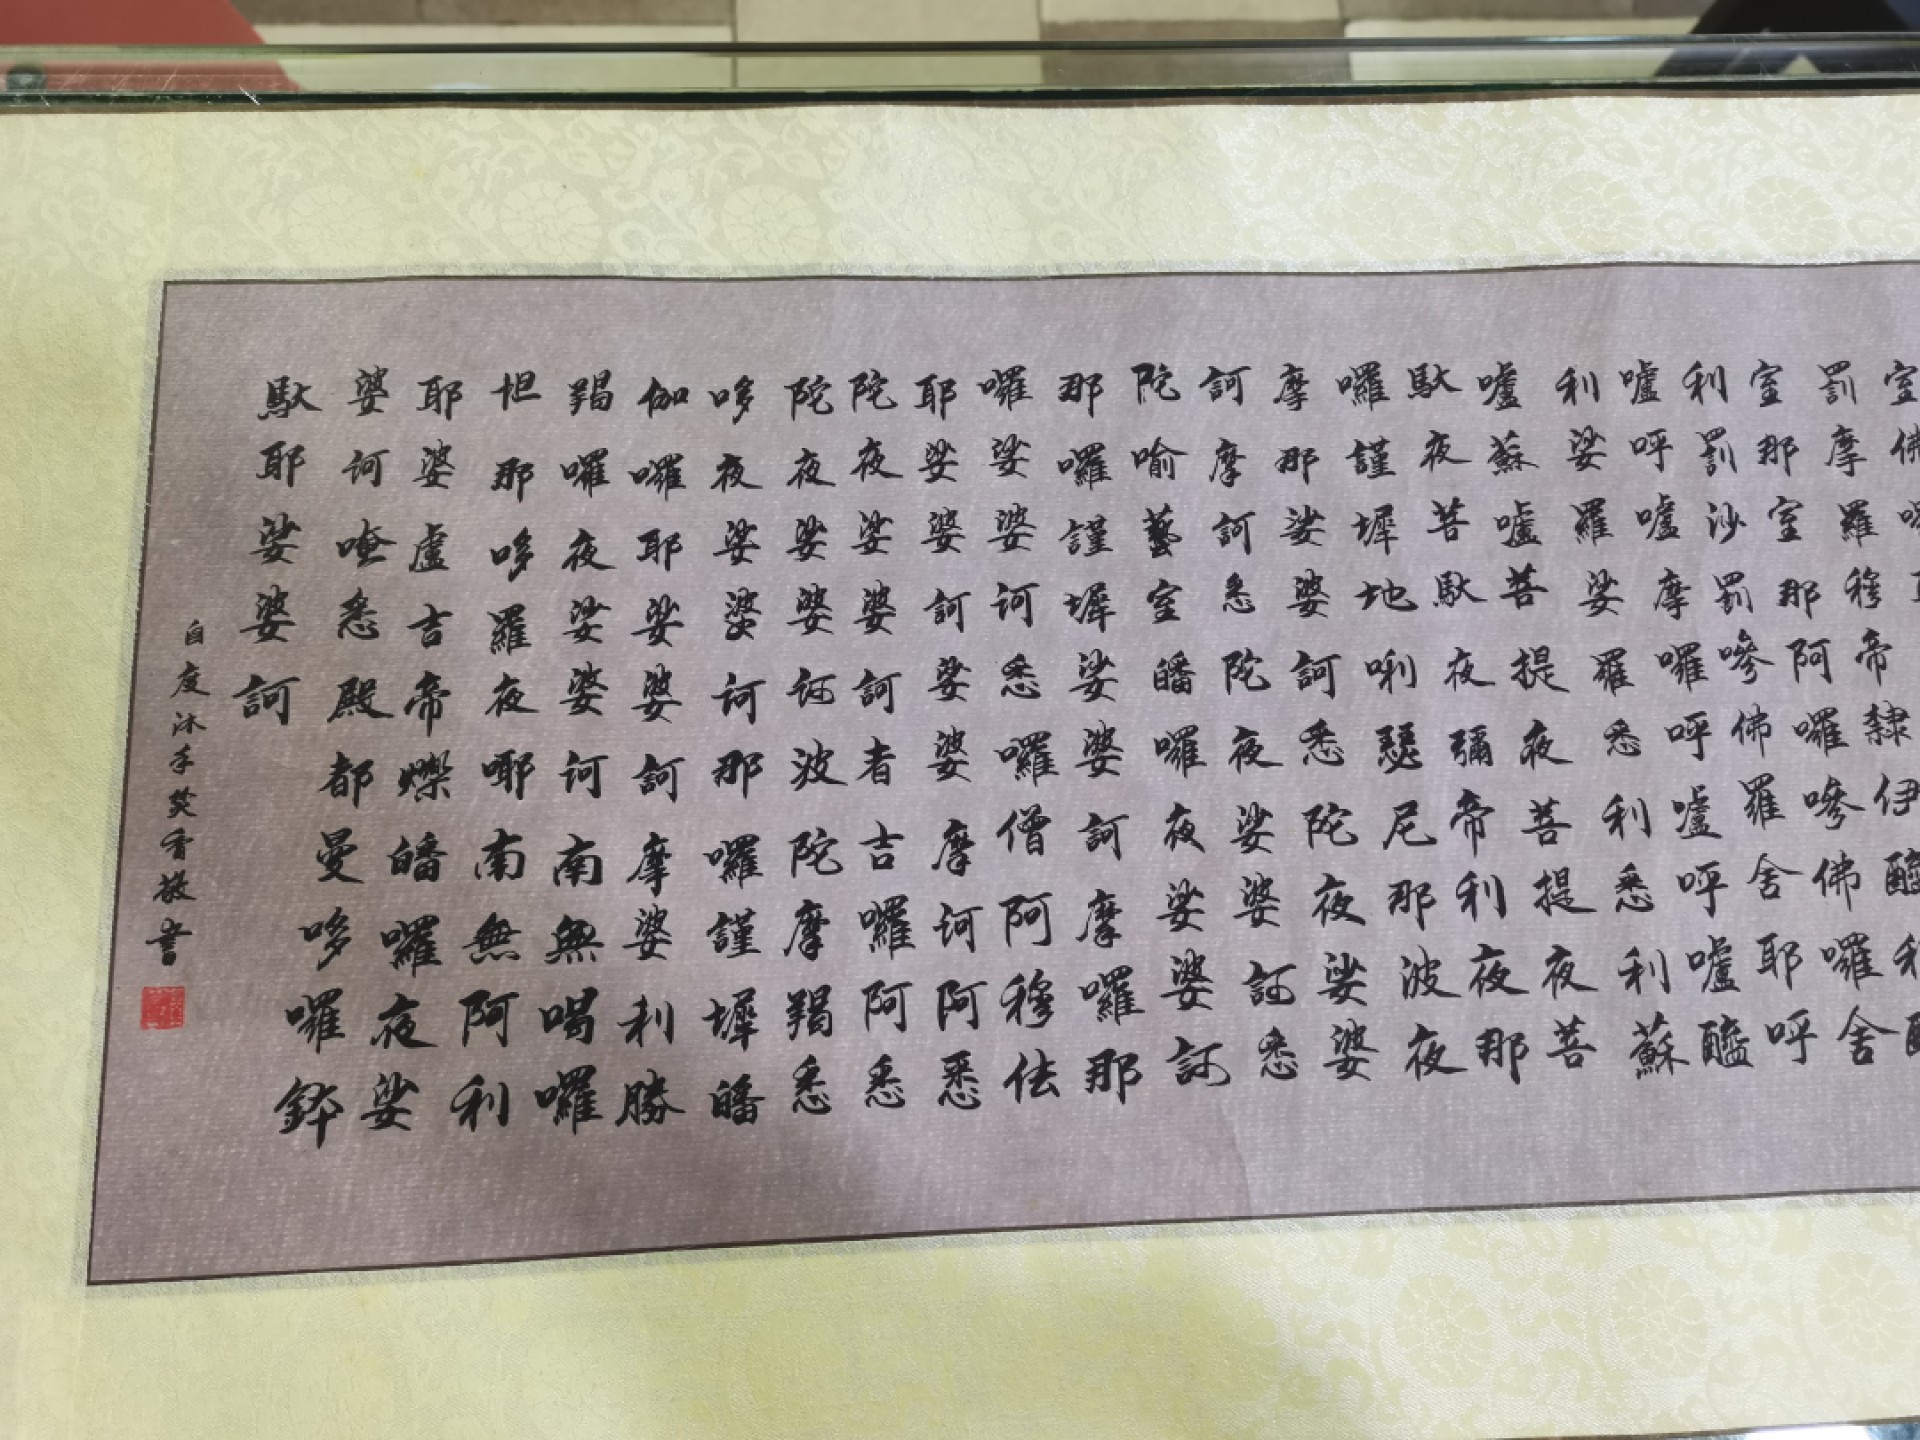 室佛
罰摩羅穆帝隸伊醯
室那室那阿囉嘇佛囉舍
利罰沙罰嘇佛羅舍耶呼
嚧呼嚧摩囉呼嚧呼嚧醯
利娑羅娑羅悉利悉利蘇
嚧蘇嚧菩提夜菩提夜菩
馱夜菩馱夜彌帝利夜那
囉謹墀地唎瑟尼那波夜
摩那娑婆訶悉陀夜娑婆
訶摩訶悉陀夜娑婆訶悉
陀喻藝室皤囉夜娑婆訶
那囉謹墀娑婆訶摩囉那
囉娑婆訶悉囉僧阿穆佉
耶娑婆訶娑婆摩訶阿悉
陀夜娑婆訶者吉囉阿悉
陀夜娑婆訶波陀摩羯悉
哆夜娑婆訶那囉謹墀皤
伽囉耶娑婆訶摩婆利勝
羯囉夜娑婆訶南無喝囉
怛那哆羅夜耶南無阿利
耶婆盧吉帝爍皤囉夜娑
婆訶唵悉殿都曼哆囉鉢
馱耶娑婆訶
自度沐手焚香敬書